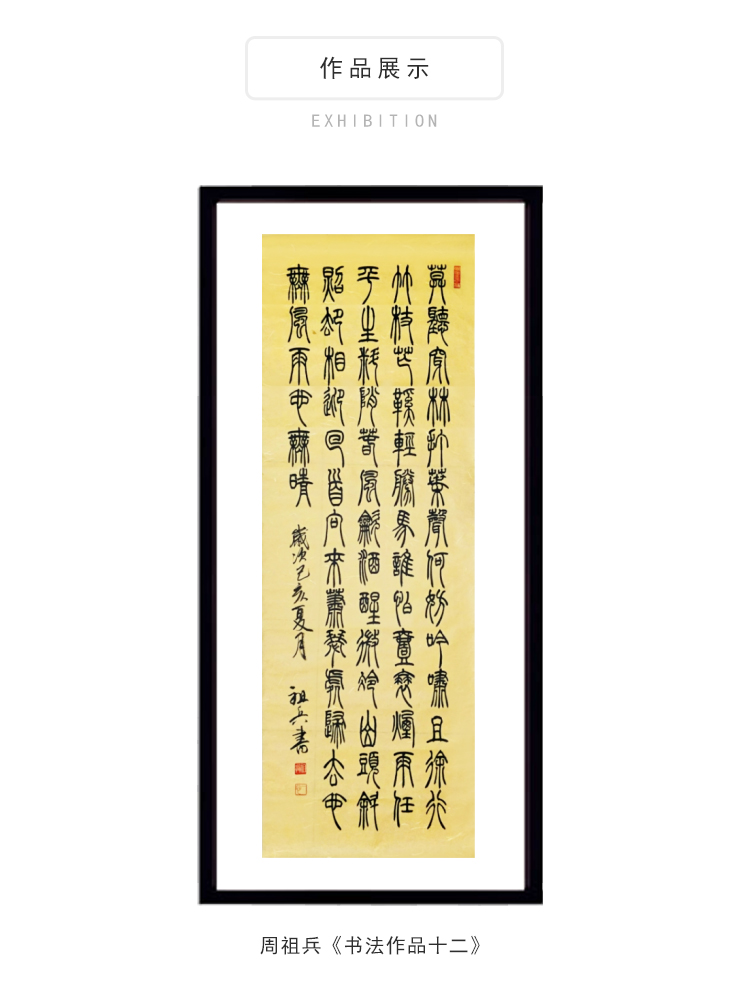 作品展示
EXHIBITION
莫聽穿林打葉聲何妨吟嘯且徐行
竹杖芒鞵輕勝馬誰怕壹蓑煙雨任
平生料峭春風龡酒醒微冷山頭斜
照却相迎回首向來蕭瑟處歸去也
無風雨也無晴 歲次己亥夏月 祖兵書
周祖兵《书法作品十二》